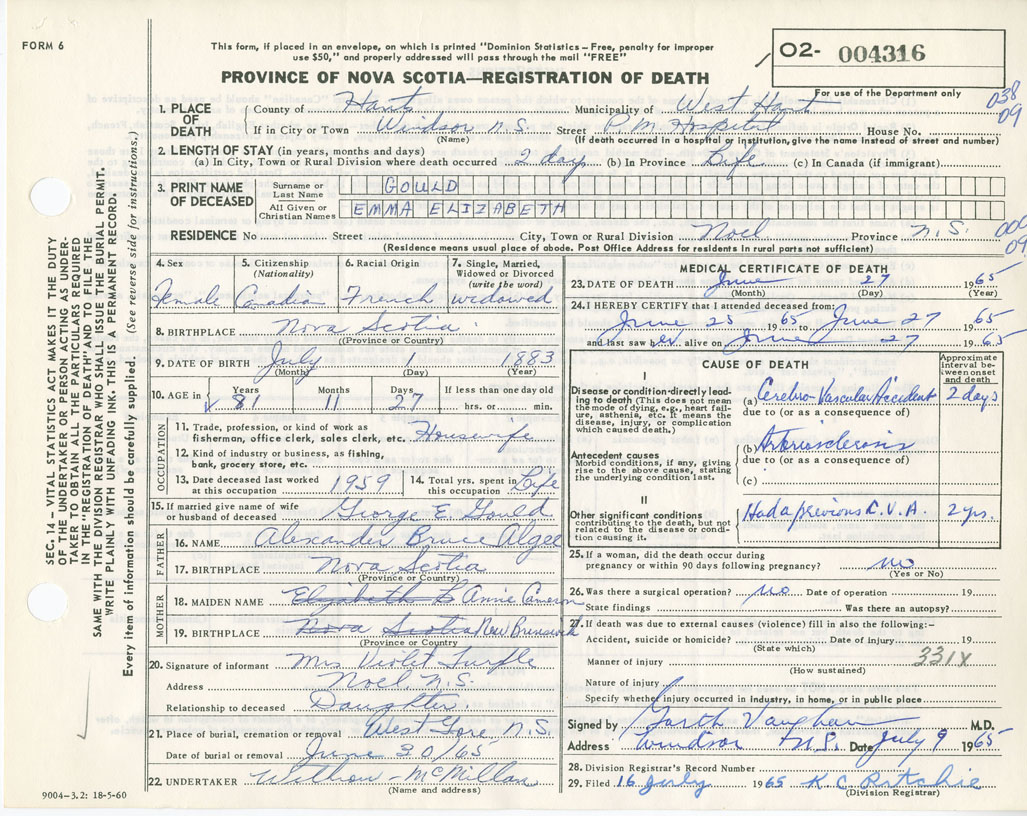 FORM 6
This form, if placed in an envelope, on which is printed "Dominion Statistics – Free, penalty for improper
use $50," and properly addressed will pass through the mail "FREE"
PROVINCE OF NOVA SCOTIA—REGISTRATION OF DEATH
O2- 004316
For use of the Department only
038
09
1. PLACE OF DEATH
County of Hants Municipality of West Hants
If in City or Town Windsor N.S. Street P. M. Hospital House No.
(Name) (If death occurred in a hospital or institution, give the name instead of street and number)
2. LENGTH OF STAY (in years, months and days)
(a) In City, Town or Rural Division where death occurred 2 days (b) In Province Life (c) In Canada (if immigrant)
3. PRINT NAME OF DECEASED
Surname or Last Name GOULD
All Given or Christian Names EMMA ELIZABETH
RESIDENCE No Street City, Town or Rural Division Noel Province N.S.
(Residence means usual place of abode. Post Office Address for residents in rural parts not sufficient)
4. Sex Female
5. Citizenship (Nationality) Canadian
6. Racial Origin French
7. Single, Married, Widowed or Divorced (write the word) widowed
8. BIRTHPLACE Nova Scotia
(Province or Country)
9. DATE OF BIRTH July 1 1883
(Month) (Day) (Year)
10. AGE in Years 81 Months 11 Days 27 If less than one day old hrs. or min.
OCCUPATION
11. Trade, profession, or kind of work as fisherman, office clerk, sales clerk, etc. Housewife
12. Kind of industry or business, as fishing, bank, grocery store, etc.
13. Date deceased last worked at this occupation 1959
14. Total yrs. spent in this occupation Life
15. If married give name of wife or husband of deceased George E. Gould
FATHER
16. NAME Alexander Bruce Algee
17. BIRTHPLACE Nova Scotia
(Province or Country)
MOTHER
18. MAIDEN NAME Elizabeth B Annie Cameron
19. BIRTHPLACE Nova Scotia New Brunswick
(Province or Country)
20. Signature of informant Mrs Violet
Address Noel, N.S.
Relationship to deceased Daughter.
21. Place of burial, cremation or removal West Gore N.S.
Date of burial or removal June 30/65
22. UNDERTAKER Withrow - McMillan
(Name and address)
9004-3.2: 18-5-60
MEDICAL CERTIFICATE OF DEATH
23. DATE OF DEATH June 27 1965
(Month) (Day) (Year)
24. I HEREBY CERTIFY that I attended deceased from:
June 25 1965 to June 27 1965
and last saw her alive on June 27 1965
CAUSE OF DEATH
Approximate interval between onset and death
I
Disease or condition directly leading to death (This does not mean the mode of dying, e.g., heart failure, asthenia, etc. It means the disease, injury, or complication which caused death.)
(a) Cerebro Vascular Accident 2 days
due to (or as a consequence of)
Antecedent causes
Morbid conditions, if any, giving rise to the above cause, stating the underlying condition last.
(b) Arteriosclerosis
due to (or as a consequence of)
(c)
II
Other significant conditions contributing to the death, but not related to the disease or condition causing it.
Had a previous C.V.A. 2 yrs.
25. If a woman, did the death occur during pregnancy or within 90 days following pregnancy? no
(Yes or No)
26. Was there a surgical operation? no Date of operation 19
State findings Was there an autopsy?
27. If death was due to external causes (violence) fill in also the following:–
Accident, suicide or homicide? Date of injury 19
(State which)
331X
Manner of injury
(How sustained)
Nature of injury
Specify whether injury occurred in industry, in home, or in public place
Signed by Garth Vaughan M.D.
Address Windsor N.S. Date July 9 1965
28. Division Registrar's Record Number
29. Filed 16 July 1965 K C Ritchie
(Division Registrar)
SEC. 14 – VITAL STATISTICS ACT MAKES IT THE DUTY
OF THE UNDERTAKER OR PERSON ACTING AS UNDER-
TAKER TO OBTAIN ALL THE PARTICULARS REQUIRED
IN THE "REGISTRATION OF DEATH" AND TO FILE THE
SAME WITH THE DIVISION REGISTRAR WHO SHALL ISSUE THE BURIAL PERMIT.
WRITE PLAINLY WITH UNFADING INK. THIS IS A PERMANENT RECORD.
Every item of information should be carefully supplied. (See reverse side for instructions.)